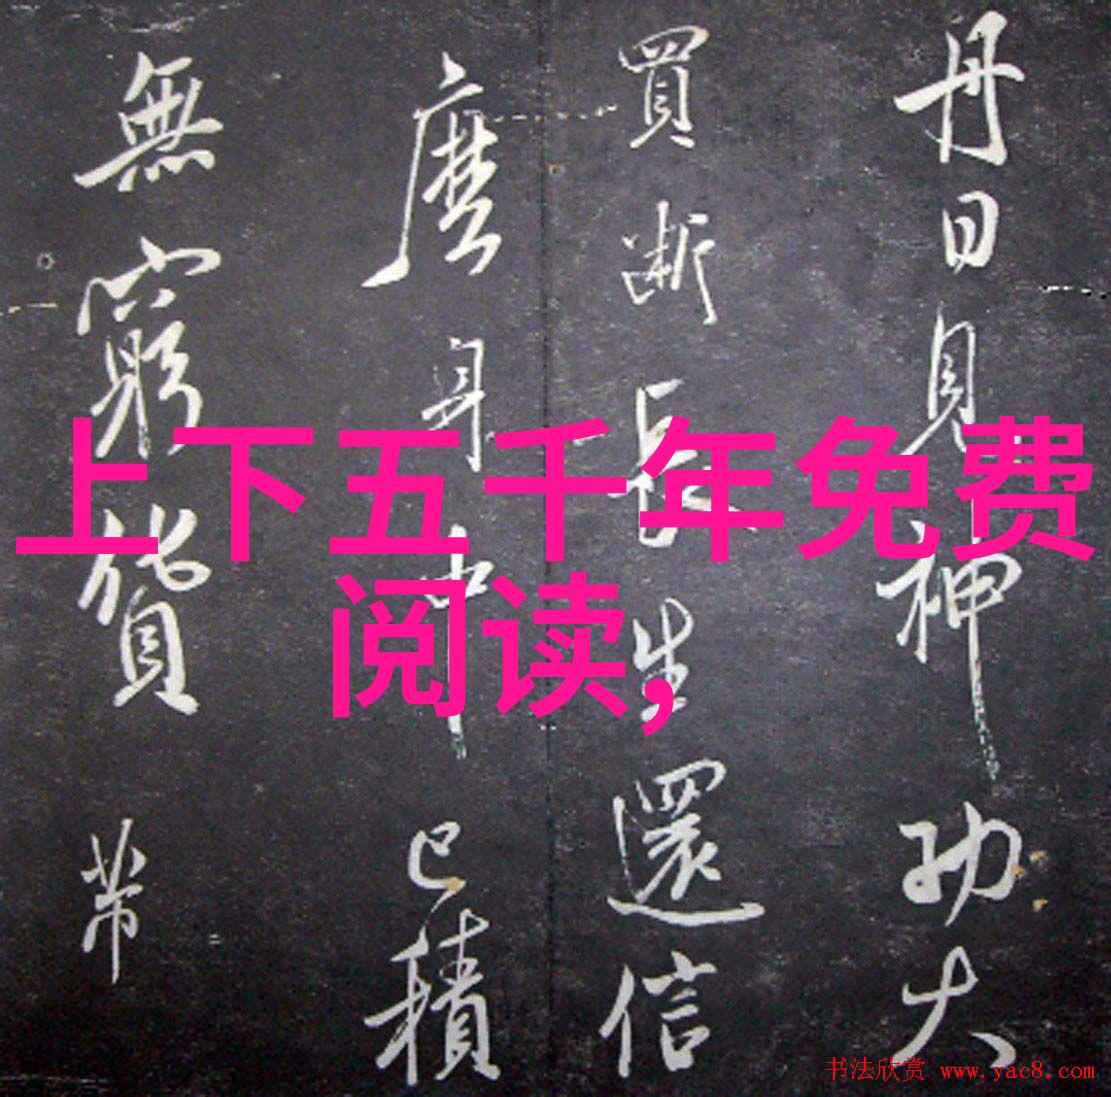 丹日見神功大
買斷長生還信
麼身中已積
無窮貨帶
上下五千年免费
阅读,
书法欣赏 www.yac8.com